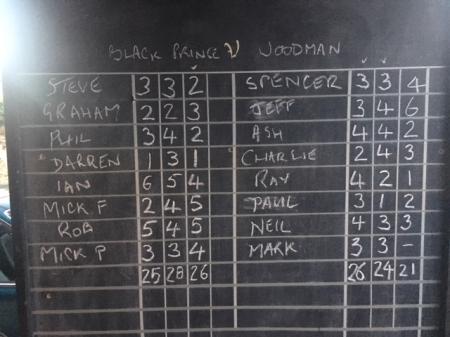 BLACK PRINCE V WOODMAN
STEVE 3 3 2 SPENCER 3 3 4
GRAHAM 2 2 3 JEFF 3 4 6
PHIL 3 4 2 ASH 4 4 2
DARREN 1 3 1 CHARLIE 2 4 3
IAN 6 5 4 RAY 4 2 1
MICK F 2 4 5 PAUL 3 1 2
ROB 5 4 5 NEIL 4 3 3
MICK P 3 3 4 MARK 3 3 -
25 28 26 26 24 21